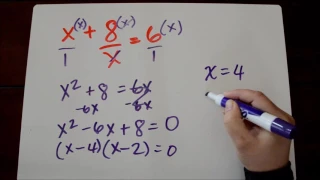 x^(x)/1 + 8^(x)/x = 6^(x)/1
x² + 8 = 6x
-6x -6x
x² - 6x + 8 = 0
(x-4)(x-2) = 0
x = 4